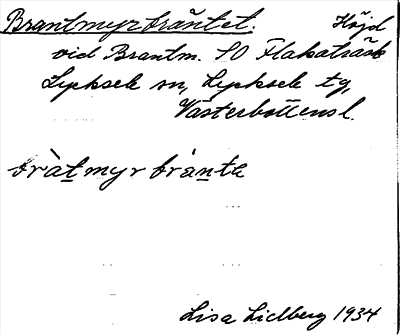 Brantmyrbräntet. Höjd
vid Brantm. SO Flakaträsk
Lycksele sn, Lycksele tg,
Västerbottensl.
bràt myr brànte
Lisa Lidberg 1934